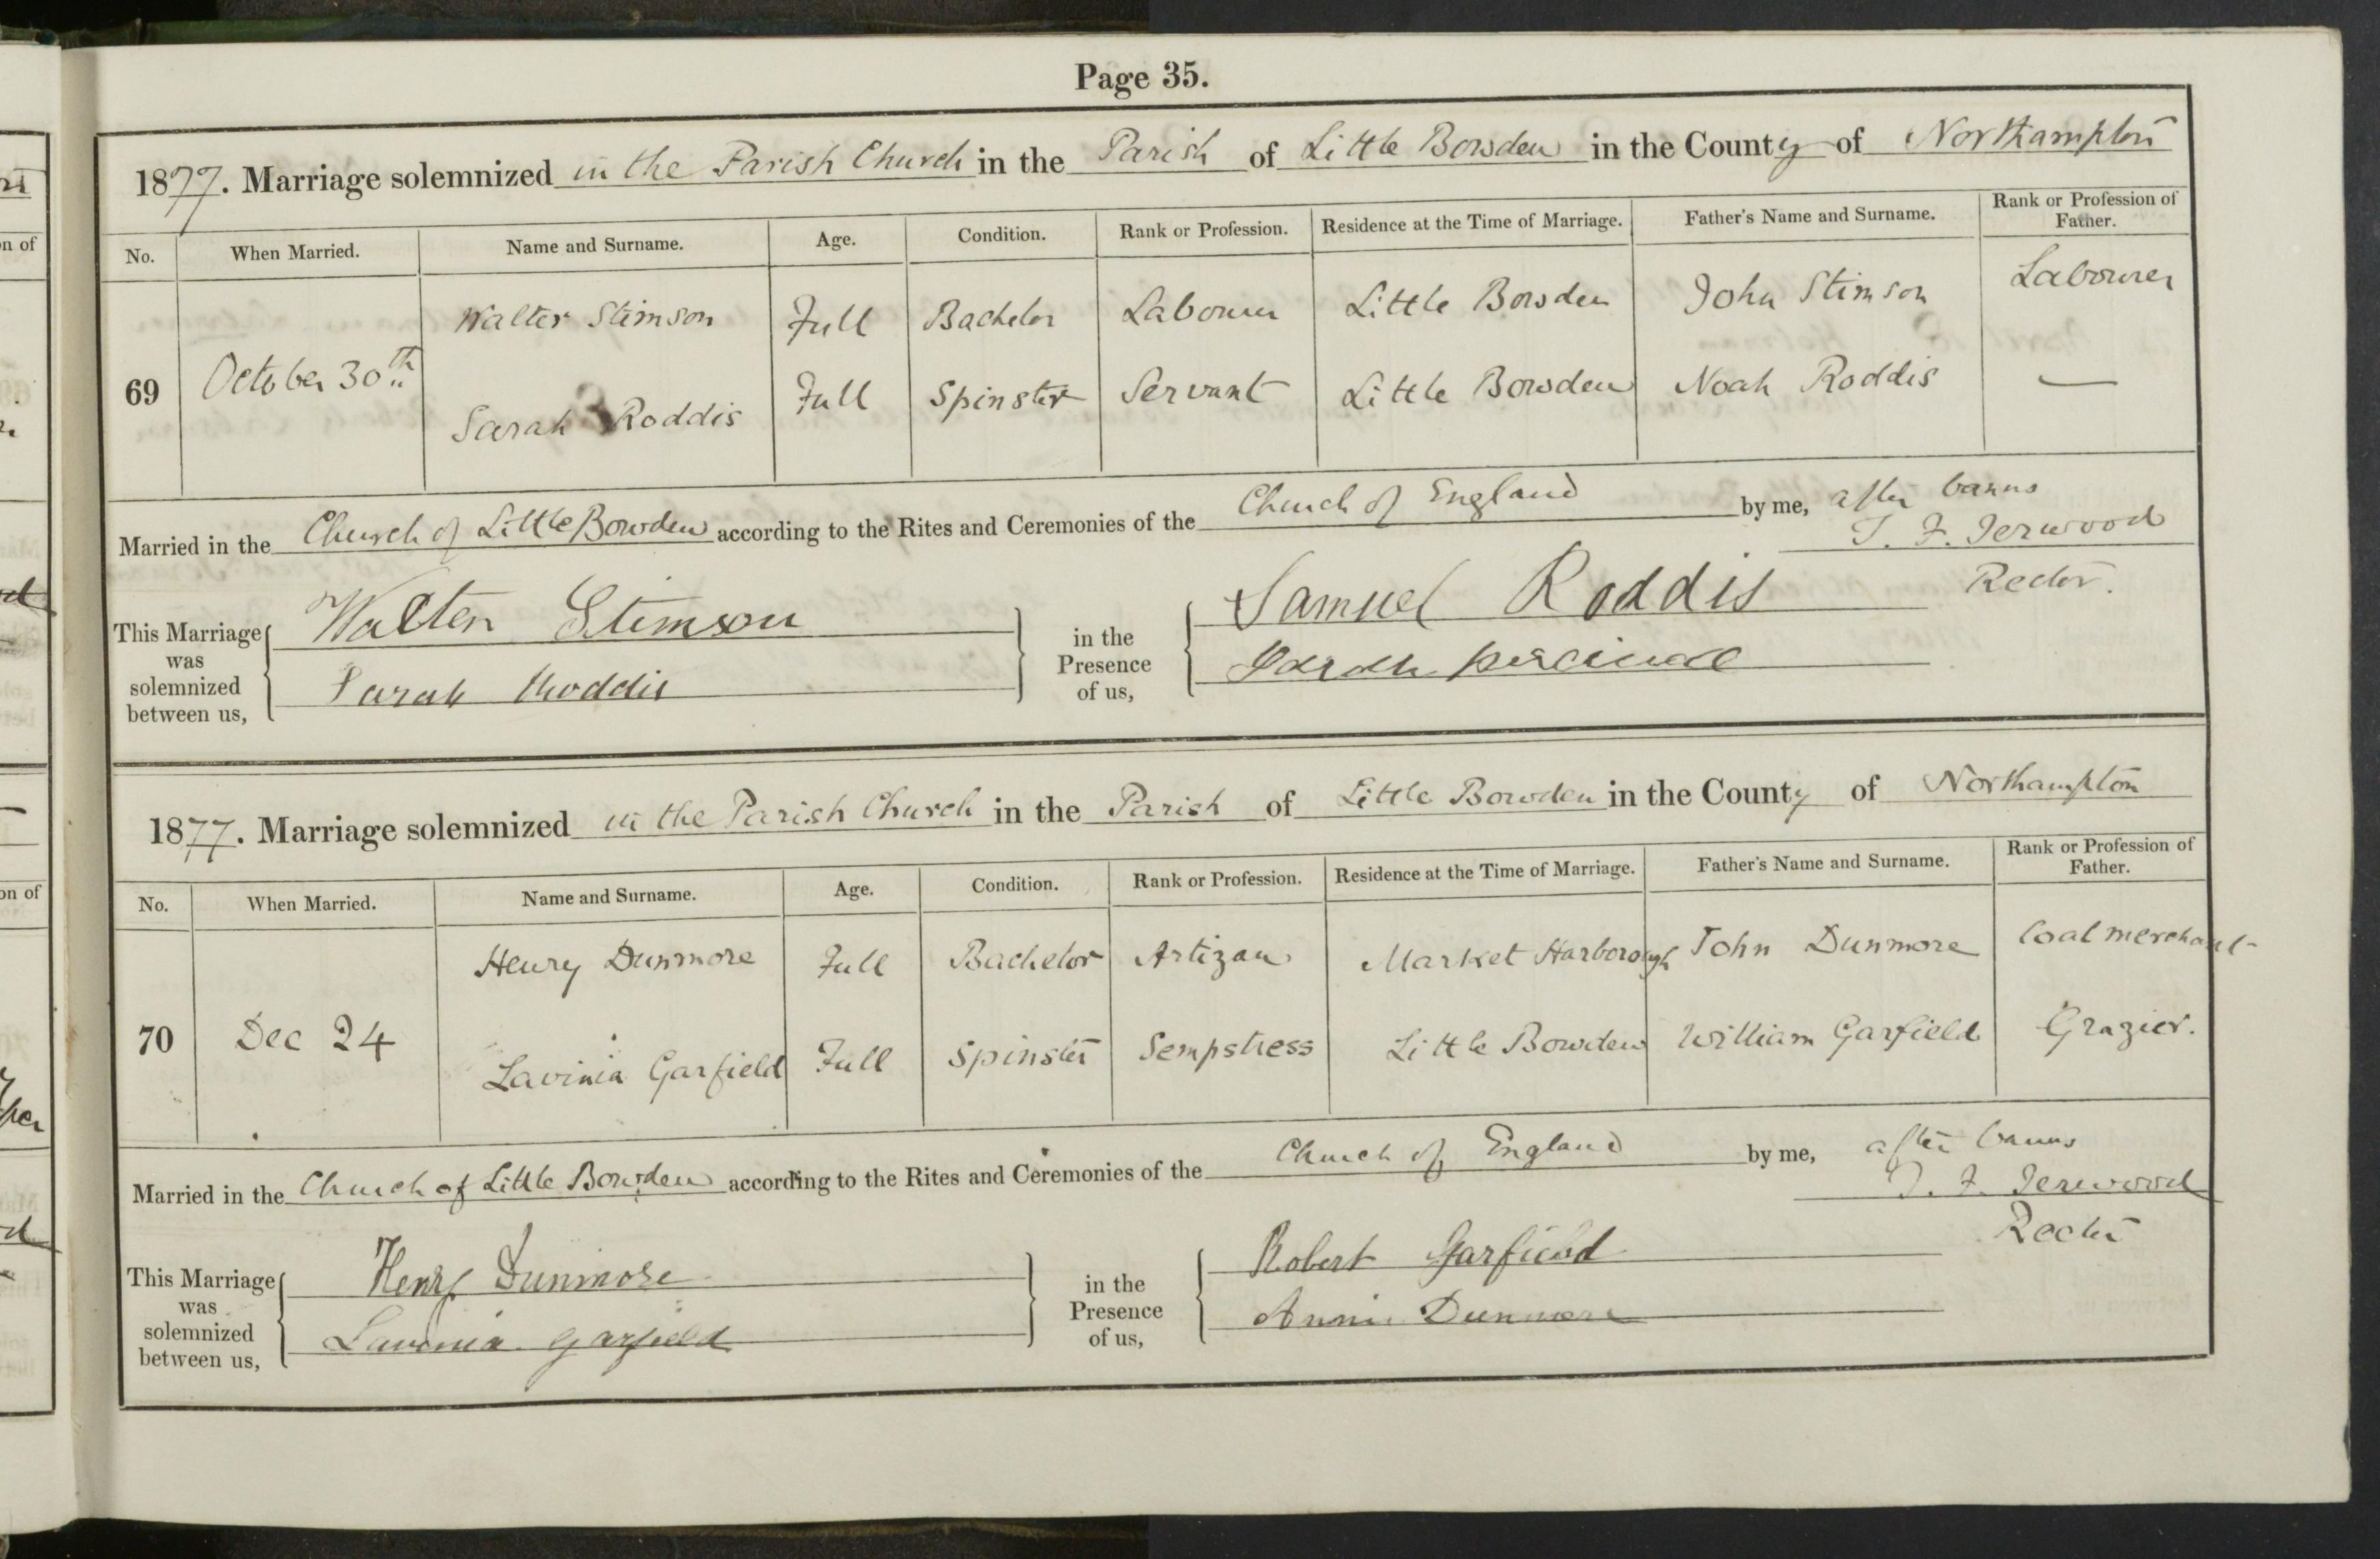 Page 35.
1877. Marriage solemnized in the Parish Church in the Parish of Little Bowden in the County of Northampton
No. When Married. Name and Surname. Age. Condition. Rank or Profession. Residence at the Time of Marriage. Father's Name and Surname. Rank or Profession of Father.
Walter Stimson Full Bachelor Labourer Little Bowden John Stimson Labourer
69 October 30th
Sarah Roddis Full Spinster Servant Little Bowden Noah Roddis —
Married in the Church of Little Bowden according to the Rites and Ceremonies of the Church of England by me, after banns
T. F. Jerwood
Rector.
This Marriage was solemnized between us,
Walter Stimson
Sarah Roddis
in the Presence of us,
Samuel Roddis
Sarah Percival
1877. Marriage solemnized in the Parish Church in the Parish of Little Bowden in the County of Northampton
No. When Married. Name and Surname. Age. Condition. Rank or Profession. Residence at the Time of Marriage. Father's Name and Surname. Rank or Profession of Father.
Henry Dunmore Full Bachelor Artizan Market Harborough John Dunmore Coalmerchant
70 Dec 24
Lavinia Garfield Full Spinster Sempstress Little Bowden William Garfield Grazier.
Married in the Church of Little Bowden according to the Rites and Ceremonies of the Church of England by me, after banns
T. F. Jerwood
Rector
This Marriage was solemnized between us,
Henry Dunmore
Lavinia Garfield
in the Presence of us,
Robert Garfield
Annie Dunmore